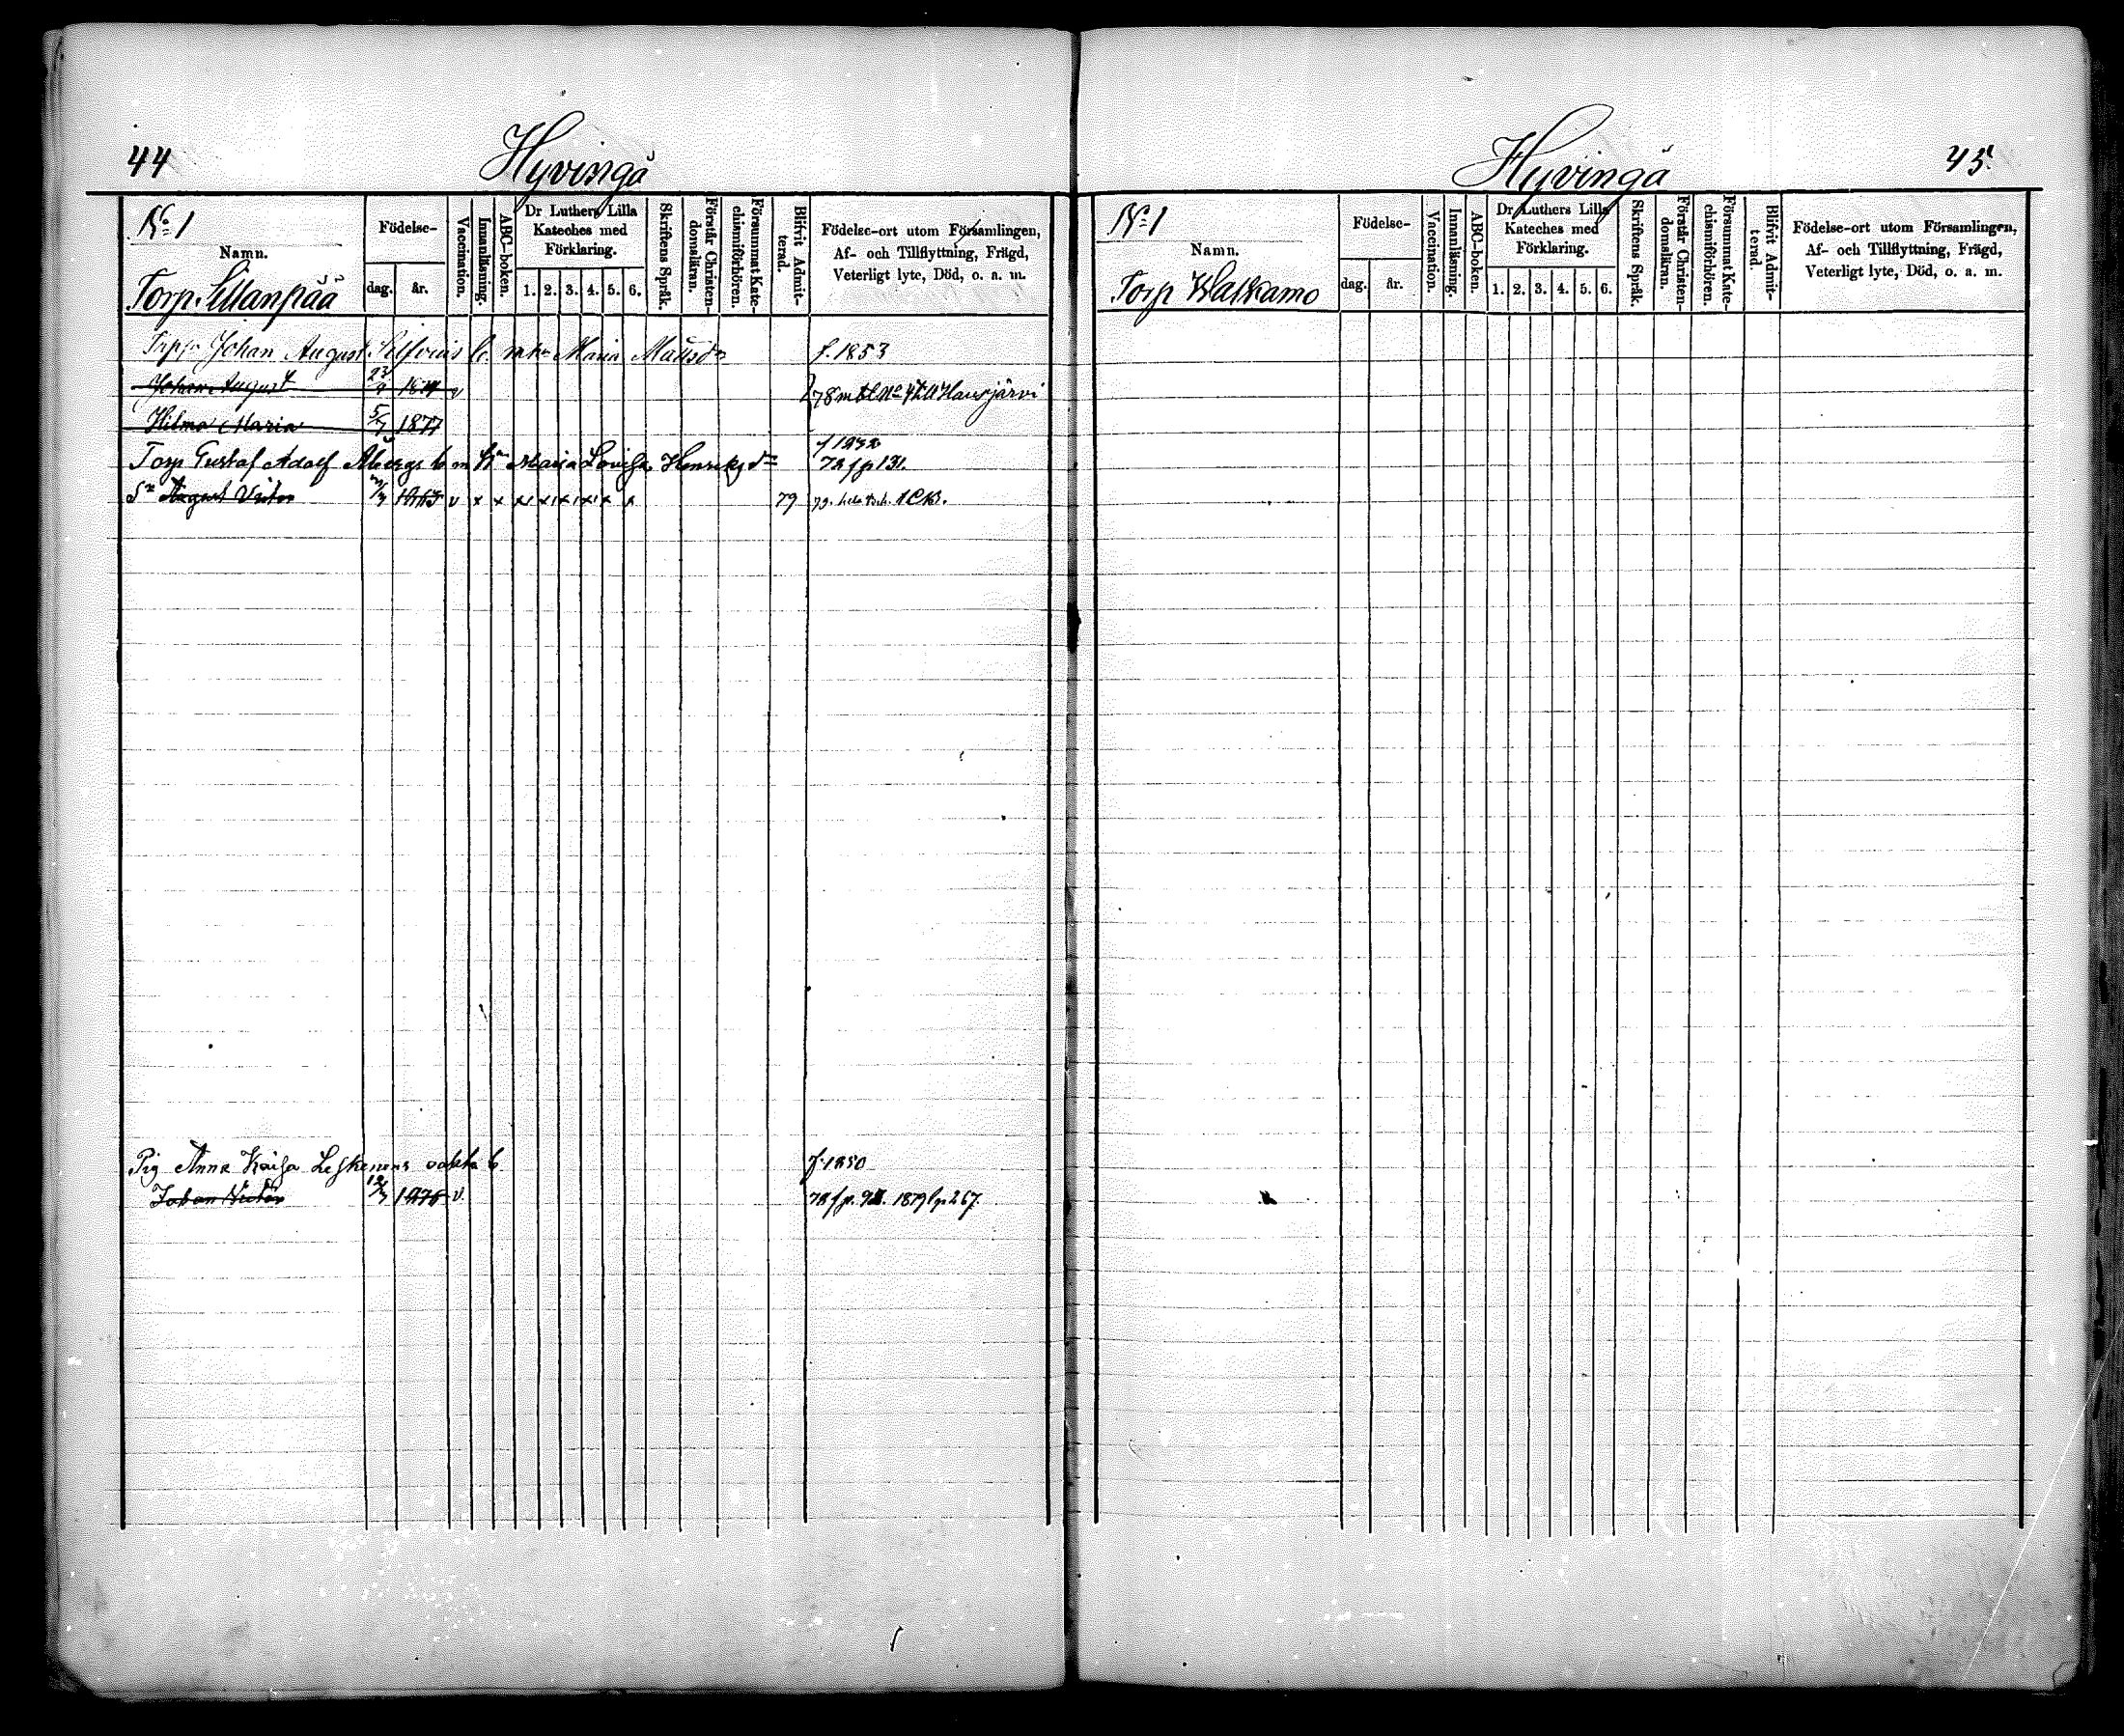 44
Hyvingå
No 1
Namn.
Torp Sillanpää
Födelse-
dag.
år.
Vaccination.
Innanläsning.
ABC-boken.
Dr Luthers Lilla
Kateches med
Förklaring.
1. 2. 3. 4. 5. 6.
Skriftens Språk.
Förstår Christen-
domsläran.
Försummat Kate-
chismiförhören.
Blifvit Admit-
terad.
Födelse-ort utom Församlingen,
Af- och Tillflyttning, Frägd,
Veterligt lyte, Död, o. a. m.
Johan August Maria Mattsdr f. 1853
Johan August 23/9 v 78 till Hausjärvi
Hilma Maria 5/7 1877
Torp Gustaf Adolf Åbergs b m Maria Lovisa Henriksdr
78 fp 131.
Sn August Victor v x x x x x x x x 79
Pig Anna Kaisa b. f. 1850
Johan Victor v. 1879 p 267.
45.
Hyvingå
No 1
Namn.
Torp Walkamo
Födelse-
dag.
år.
Vaccination.
Innanläsning.
ABC-boken.
Dr Luthers Lilla
Kateches med
Förklaring.
1. 2. 3. 4. 5. 6.
Skriftens Språk.
Förstår Christen-
domsläran.
Försummat Kate-
chismiförhören.
Blifvit Admit-
terad.
Födelse-ort utom Församlingen,
Af- och Tillflyttning, Frägd,
Veterligt lyte, Död, o. a. m.